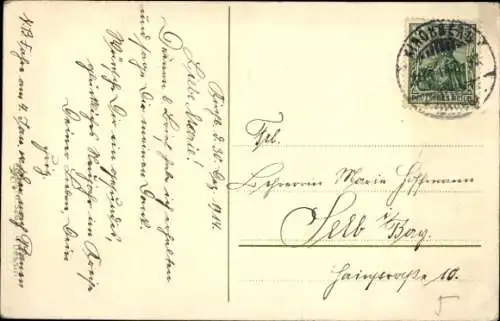 d. 30. Dez. 1914.
Liebe Marie!
Deinen l. Brief habe ich erhalten
und sage Dir meinen Dank.
Wünsche Dir ein gesundes,
glückliches Neujahr im Kreise
Deiner Lieben, Dein
N.B. Fahre am 4. Jan.
Frl.
Lehrerin Marie Hoffmann
Selb i/Bay.
Hainstraße 10.
5
DEUTSCHES REICH